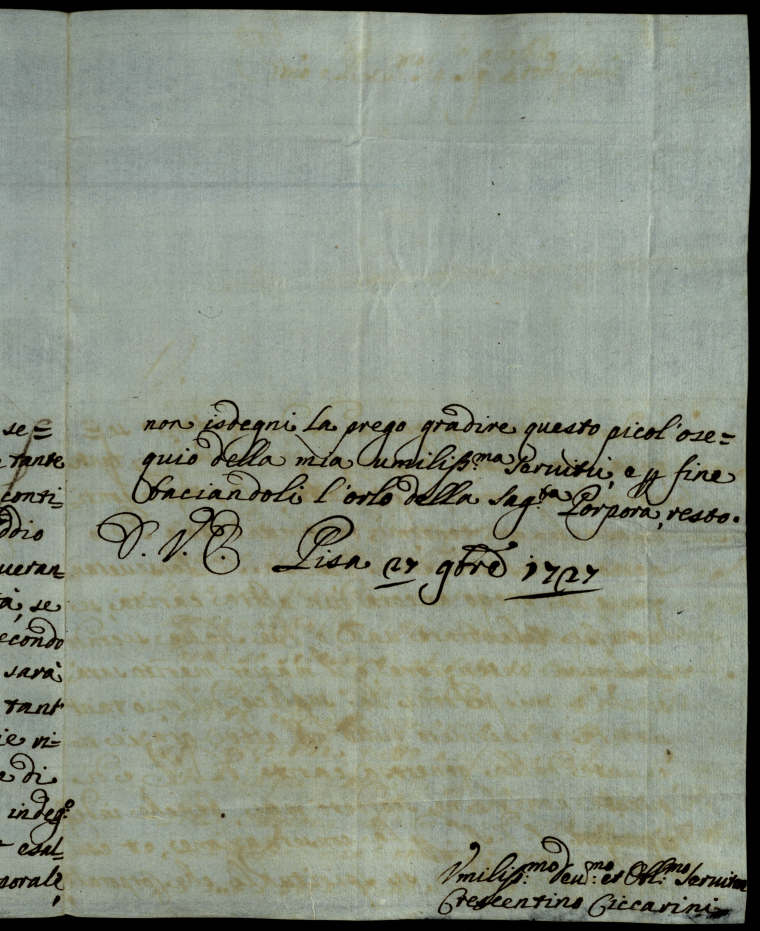 se=
tante
conti=
ddio
ueran=
tà, se
econdo
sarà
tant'
ie ri=
e di
indeg.º
esal=
porale
non isdegni La prego gradire questo picol'ose=
quio della mia umiliss.ma Seruitù, e p fine
baciandoli l'orlo della sag.ta Porpora, resto.
D. V. E. Pisa 27 9bre 1727
Vmiliss.mo deu.mo et Obl.mo Seruitore
Crescentino Ciccarini